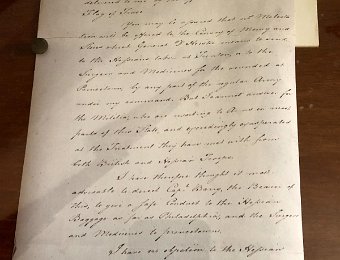 delivered to me by
Flag of Truce
You may be assured that no Molesta-
tion will be offered to the Convoy of Money and
Stores which General D'Heister intends to send
to the Hessians taken at Trenton, or to the
Surgeon and Medicines for the wounded at
Princetown, by any part of the regular Army
under my command. But I cannot answer for
the Militia who are resorting to Arms in most
parts of this State, and exceedingly exasperated
at the Treatment they have met with from
both British and Hessian Troops.
I have therefore thought it most
adviseable to direct Capt. the Bearer of
this, to give a safe Conduct to the Hessian
Baggage as far as Philadelphia, and the Surgeon
and Medicines to Princetown.
I have no objection to the Hessian